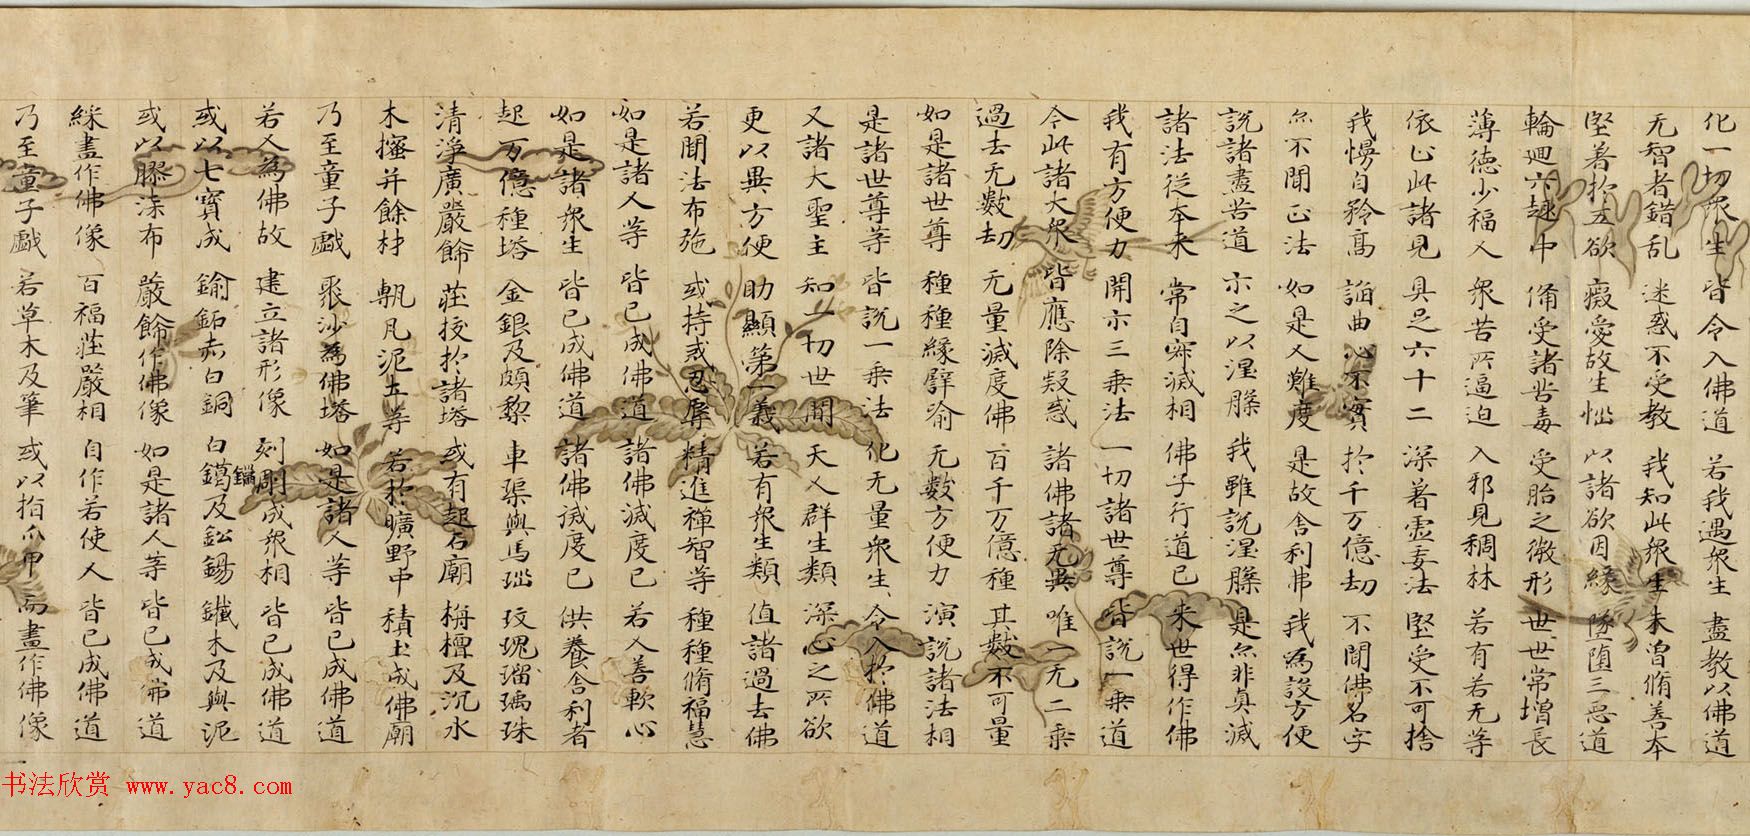 化一切衆生 皆令入佛道 若我遇衆生 盡教以佛道
无智者錯乱 迷惑不受教 我知此衆生 未曽脩善本
堅著於五欲 癡愛故生惱 以諸欲因縁 墜堕三惡道
輪廻六趣中 俻受諸苦毒 受胎之微形 世世常増長
薄徳少福人 衆苦所逼迫 入邪見稠林 若有若无等
依止此諸見 具足六十二 深著虚妄法 堅受不可捨
我慢自矜高 諂曲心不實 於千万億劫 不聞佛名字
亦不聞正法 如是人難度 是故舎利弗 我為設方便
說諸盡苦道 示之以涅槃 我雖說涅槃 是亦非真滅
諸法従本来 常自寂滅相 佛子行道已 来世得作佛
我有方便力 開示三乗法 一切諸世尊 皆說一乗道
今此諸大衆 皆應除疑惑 諸佛語无異 唯一无二乗
過去无數劫 无量滅度佛 百千万億種 其數不可量
如是諸世尊 種種縁譬喻 无數方便力 演說諸法相
是諸世尊等 皆說一乗法 化无量衆生 令入於佛道
又諸大聖主 知一切世間 天人群生類 深心之所欲
更以異方便 助顯第一義 若有衆生類 值諸過去佛
若聞法布施 或持戒忍辱 精進禪智等 種種脩福慧
如是諸人等 皆已成佛道 諸佛滅度已 若人善軟心
如是諸衆生 皆已成佛道 諸佛滅度已 供養舎利者
起万億種塔 金銀及頗黎 車𤦲與馬瑙 玫瑰瑠璃珠
清淨廣嚴餝 莊挍於諸塔 或有起石廟 栴檀及沉水
木櫁并餘材 甎瓦泥土等 若於曠野中 積土成佛廟
乃至童子戯 聚沙為佛塔 如是諸人等 皆已成佛道
若人為佛故 建立諸形像 刻彫成衆相 皆已成佛道
或以七寳成 鍮鉐赤白銅 白鑞及鈆錫 鐵木及與泥
或以膠漆布 嚴餝作佛像 如是諸人等 皆已成佛道
綵畫作佛像 百福莊嚴相 自作若使人 皆已成佛道
乃至童子戯 若草木及筆 或以指爪甲 而畫作佛像
书法欣赏 www.yac8.com